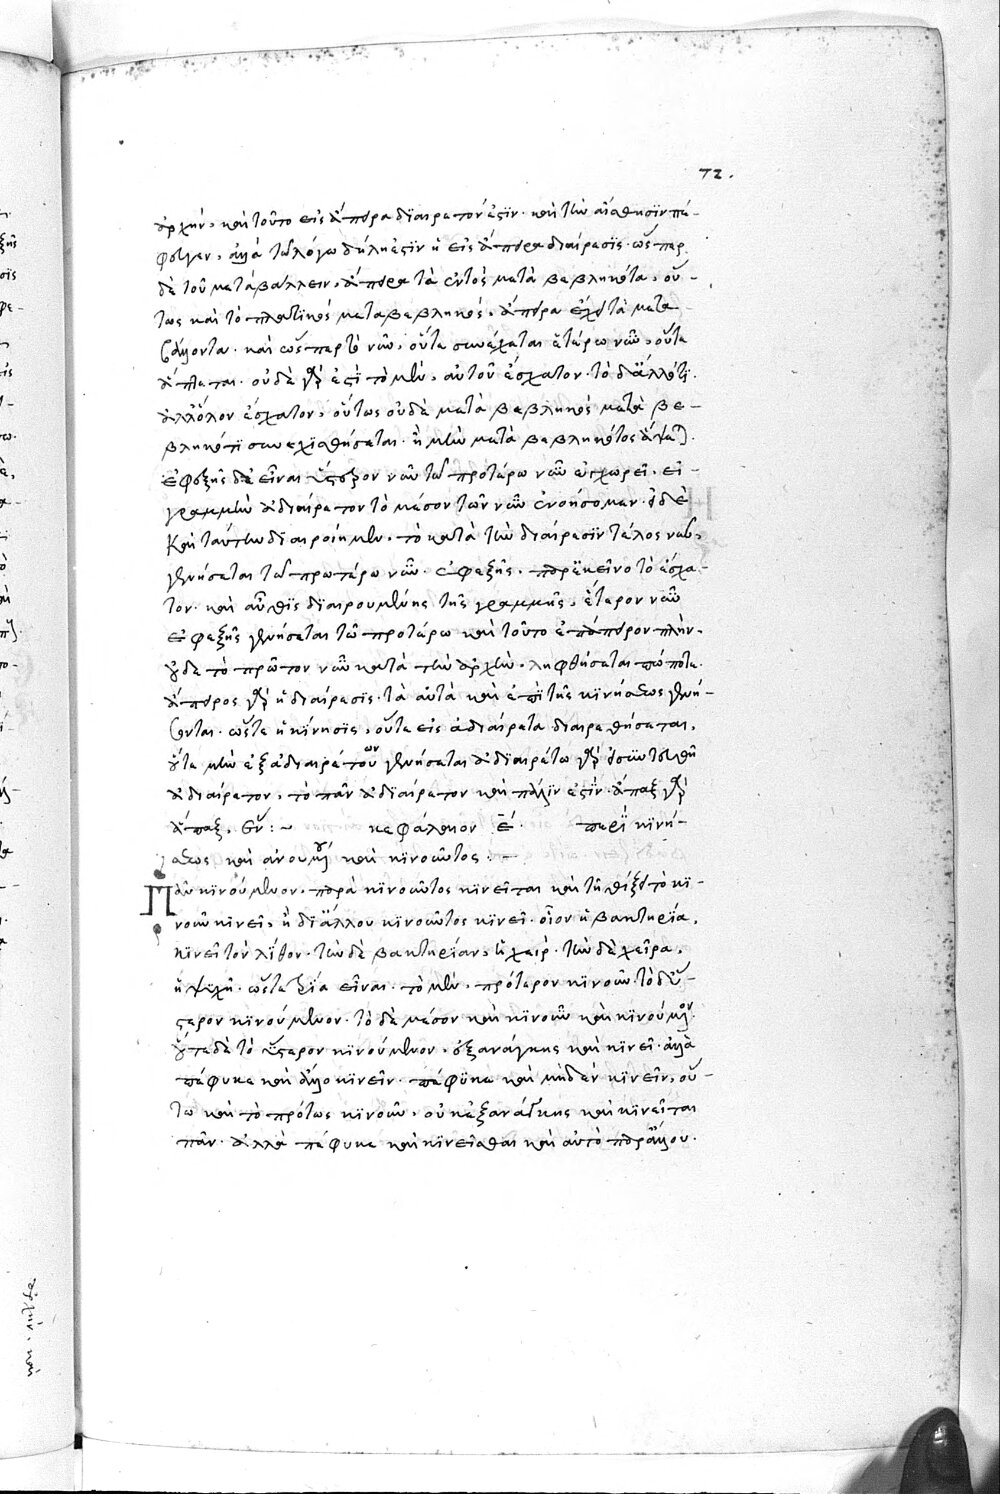 72.
ἀρχήν, καὶ τοῦτο εἰς ἄπειρα διαιρετόν ἐστιν. καὶ τὴν αἴσθησιν πέ-
φευγεν, ἀλλὰ τῶ λόγω δήλη ἐστὶν ἡ εἰς ἄπειρα διαίρεσις. ὥσπερ
δὲ τοῦ μεταβάλλειν, ἄπειρα τὰ ἐντὸς μεταβεβληκότα, οὕ-
τως καὶ τὸ παντὶ κὸς μεταβεβληκός, ἄπειρα ἔχει τὰ μετα-
βάλλοντα. καὶ ὥσπερ τὸ νῦν, οὔτε συνέχεται ἑτέρω νῦν, οὔτε
ἅπτεται. οὐδὲ γάρ ἐστι τὸ μὲν, αὐτοῦ ἔσχατον. τὸ δὲ ἄλλο τι.
ἀλλ' ὅλον ἔσχατον, οὕτως οὐδὲ μεταβεβληκὸς μεταβε-
βληκότι συνεχισθήσεται. ἢ μὴν μεταβεβληκότος ἅψεται.
ἐφεξῆς δὲ εἶναι ὕστερον νῦν τῶ προτέρω νῦν ἐγχωρεῖ. εἰ
γραμμὴν ἀδιαίρετον τὸ μέσον τῶν νῦν ἐνοήσομεν. εἰ δὲ
καὶ ταύτην διαιροίημεν, τὸ κατὰ τὴν διαίρεσιν τέλος νῦν,
γενήσεται τῶ προτέρω νῦν. ἐφεξῆς, παρεκεῖνο τὸ ἔσχα-
τον. καὶ αὖθις διαιρουμένης τῆς γραμμῆς, ἕτερον νῦν
ἐφεξῆς γενήσεται τῶ προτέρω καὶ τοῦτο ἐπάπειρον πλὴν.
οὐδὲ τὸ πρῶτον νῦν κατὰ τὴν ἀρχὴν, ληφθήσεται πώποτε.
ἄπειρος γὰρ ἡ διαίρεσις. τὰ αὐτὰ καὶ ἐπὶ τῆς κινήσεως γενή-
σονται. ὥστε ἡ κίνησις, οὔτε εἰς ἀδιαίρετα διαιρεθήσεται,
οὔτε μὴν ἐξ ἀδιαιρέτων γενήσεται ἀδιαιρέτω γὰρ ἐὰν συντεθῆ
ἀδιαίρετον, τὸ πᾶν ἀδιαίρετον καὶ πάλιν ἐστίν. ἅπαξ γὰρ
ἅπαξ, ἕν : ~ κεφάλαιον ε̄. περὶ κινή-
σεως καὶ κινουμένου καὶ κινοῦντος : –
Πᾶν κινούμενον, παρὰ κινοῦντος κινεῖται καὶ τῆ θίξει τὸ κι-
νοῦν κινεῖ, ἢ δι' ἄλλου κινοῦντος κινεῖ. οἷον ἡ βακτηρία,
κινεῖ τὸν λίθον. τὴν δὲ βακτηρίαν, ἡ χείρ. τὴν δὲ χεῖρα,
ἡ ψυχή. ὥστε τρία εἶναι. τὸ μὲν, πρότερον κινοῦν. τὸ δ' ὕ-
στερον κινούμενον. τὸ δὲ μέσον καὶ κινοῦν καὶ κινούμενον.
οὔτε δὲ τὸ ὕστερον κινούμενον, ἐξ ἀνάγκης καὶ κινεῖ. ἀλλὰ
πέφυκε καὶ ἄλλο κινεῖν. πέφυκε καὶ μηδὲν κινεῖν, οὔ-
τω καὶ τὸ πρώτως κινοῦν, οὐκ ἐξ ἀνάγκης καὶ κινεῖται
πᾶν. ἀλλὰ πέφυκε καὶ κινεῖσθαι καὶ αὐτὸ παρ' ἄλλου.